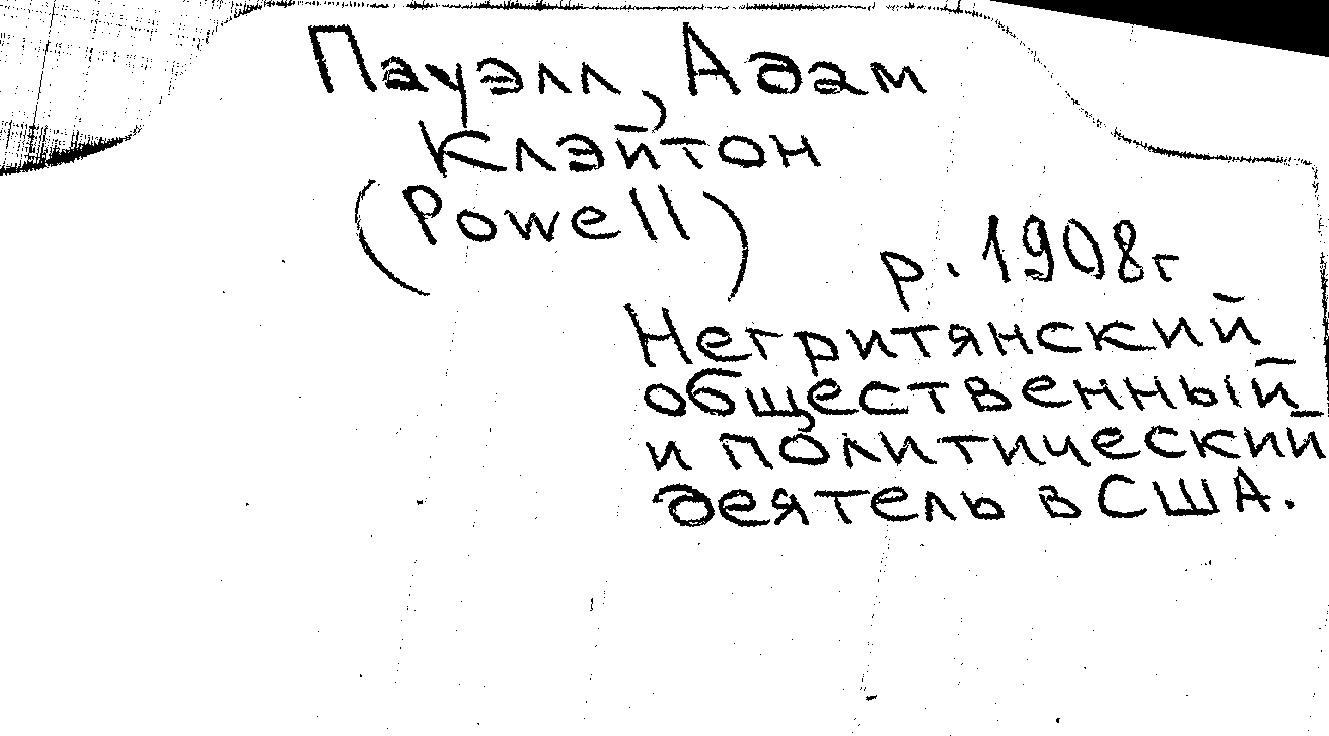 Пауэлл, Адам
Клэйтон
(Powell)
р. 1908г
Негритянский
общественный
и политический
деятель в США.